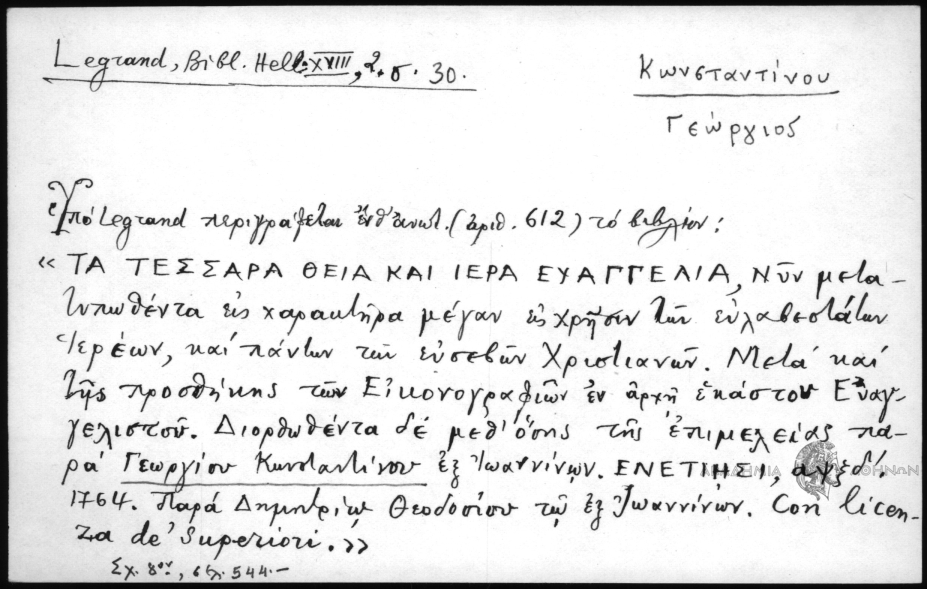 Legrand, Bibl. Hell. XVIII, 2. σ. 30.
Κωνσταντίνου
Γεώργιος
Ὑπό Legrand περιγράφεται ἐνθ' ἀνωτ. (ἀριθ. 612) τό βιβλίον:
« ΤΑ ΤΕΣΣΑΡΑ ΘΕΙΑ ΚΑΙ ΙΕΡΑ ΕΥΑΓΓΕΛΙΑ, Νῦν μετα-
τυπωθέντα εἰς χαρακτῆρα μέγαν εἰς χρῆσιν τῶν εὐλαβεστάτων
Ἱερέων, καί πάντων τῶν εὐσεβῶν Χριστιανῶν. Μετά καί
τῆς προσθήκης τῶν Εἰκονογραφιῶν ἐν ἀρχῇ ἑκάστου Εὐαγ-
γελιστοῦ. Διορθωθέντα δέ μεθ' ὅσης τῆς ἐπιμελείας πα-
ρά Γεωργίου Κωνσταντίνου ἐξ Ἰωαννίνων. ΕΝΕΤΙΗΣΙ, αψξδ'.
1764. Παρά Δημητρίῳ Θεοδοσίου τῷ ἐξ Ἰωαννίνων. Con licen-
za de' Superiori. »
Σχ. 8ον, σελ. 544.-
ΑΚΑΔΗΜΙΑ ΑΘΗΝΩΝ